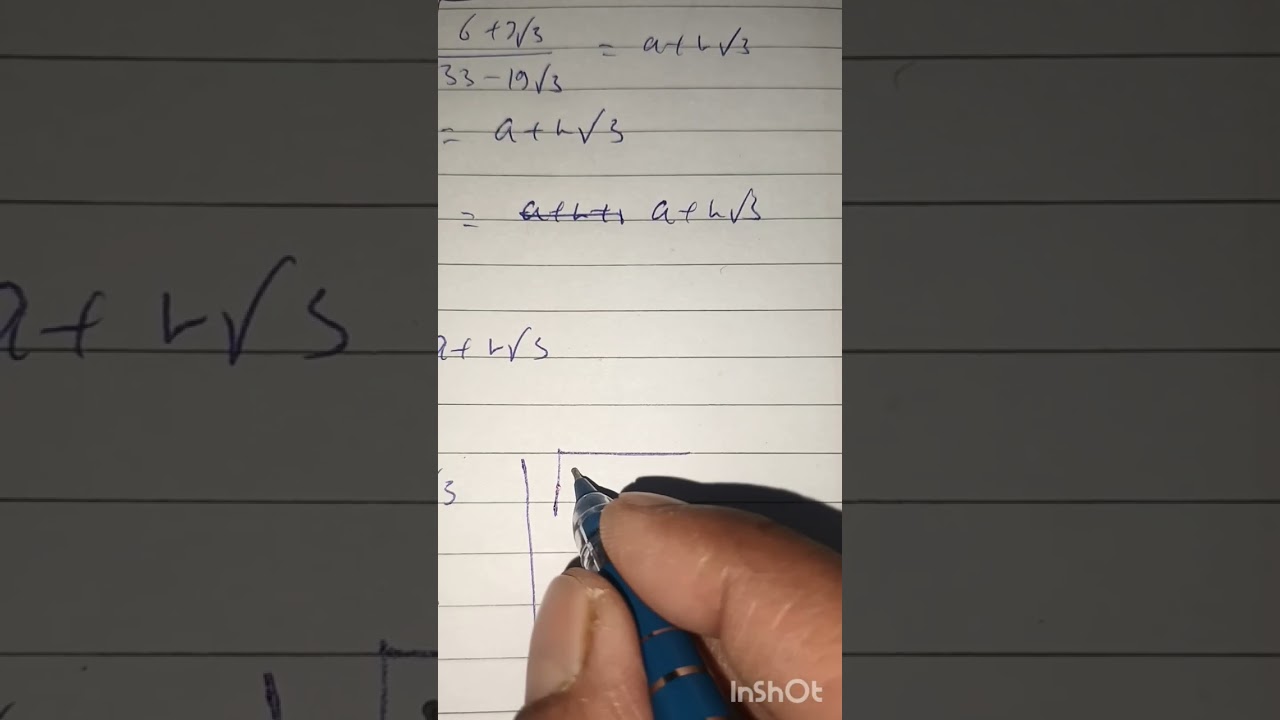 6 + 2√3
= a + b√3
33 - 19√3
= a + b√3
= a + b√3
a + b√3
a + b√3
3
InShOt